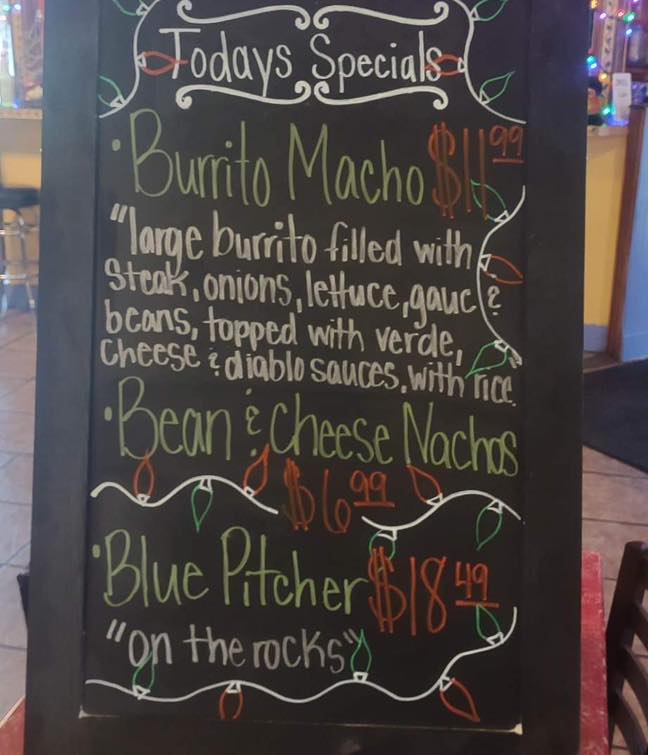 Todays Specials
• Burrito Macho $11.99
"large burrito filled with
steak, onions, lettuce, gauc &
beans, topped with verde,
cheese & diablo sauces, with rice.
• Bean & Cheese Nachos
$6.99
• Blue Pitcher $18.49
"on the rocks"